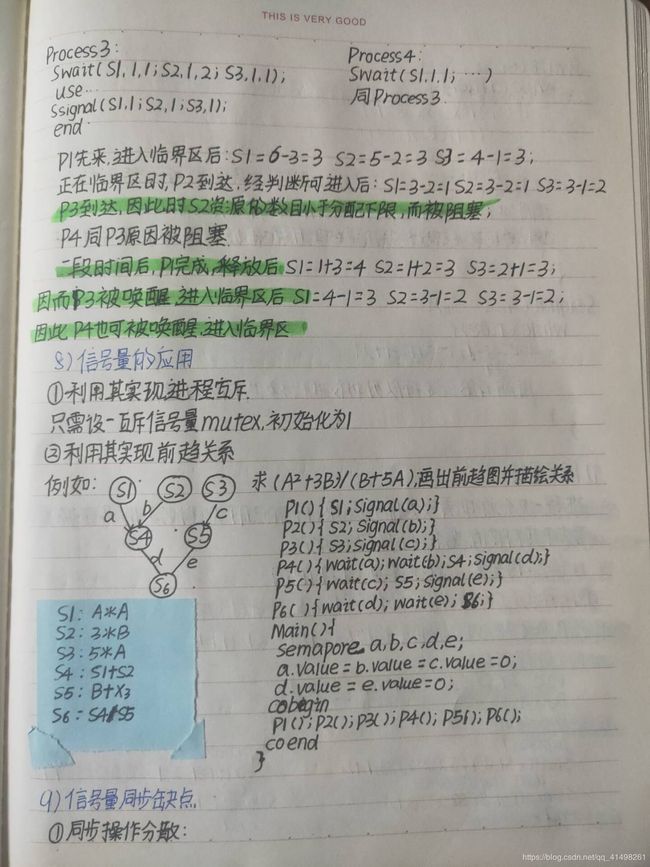 THIS IS VERY GOOD
Process3:
Swait(S1,1,1;S2,1,2;S3,1,1);
use…
Ssignal(S1,1;S2,1;S3,1);
end
Process4:
Swait(S1,1,1;……)
同Process3
P1先来,进入临界区后:S1=6-3=3 S2=5-2=3 S3=4-1=3;
正在临界区时,P2到达,经判断可进入后:S1=3-2=1 S2=3-2=1 S3=3-1=2
P3到达,因此时S2资源化数目小于分配下限,而被阻塞;
P4同P3原因被阻塞
一段时间后,P1完成,释放后 S1=1+3=4 S2=1+2=3 S3=2+1=3;
因而P3被唤醒,进入临界区后 S1=4-1=3 S2=3-1=2 S3=3-1=2;
因此P4也可被唤醒,进入临界区
8)信号量的应用
①利用其实现进程互斥.
只需设一互斥信号量mutex,初始化为1
②利用其实现前趋关系
例如:
S1 S2 S3
a b c
S4 S5
d e
S6
S1: A*A
S2: 3*B
S3: 5*A
S4: S1+S2
S5: B+X3
S6: S4/S5
求(A²+3B)/(B+5A),画出前趋图并描绘关系
P1(){S1;Signal(a);}
P2(){S2;Signal(b);}
P3(){S3;Signal(c);}
P4(){wait(a);wait(b);S4;Signal(d);}
P5(){wait(c); S5;signal(e);}
P6(){wait(d); wait(e); S6;}
Main(){
semapore a,b,c,d,e;
a.value=b.value=c.value=0;
d.value=e.value=0;
cobegin
P1();P2();P3();P4();P5();P6();
coend
}
9)信号量同步缺点
①同步操作分散:
https://blog.csdn.net/qq_41498261